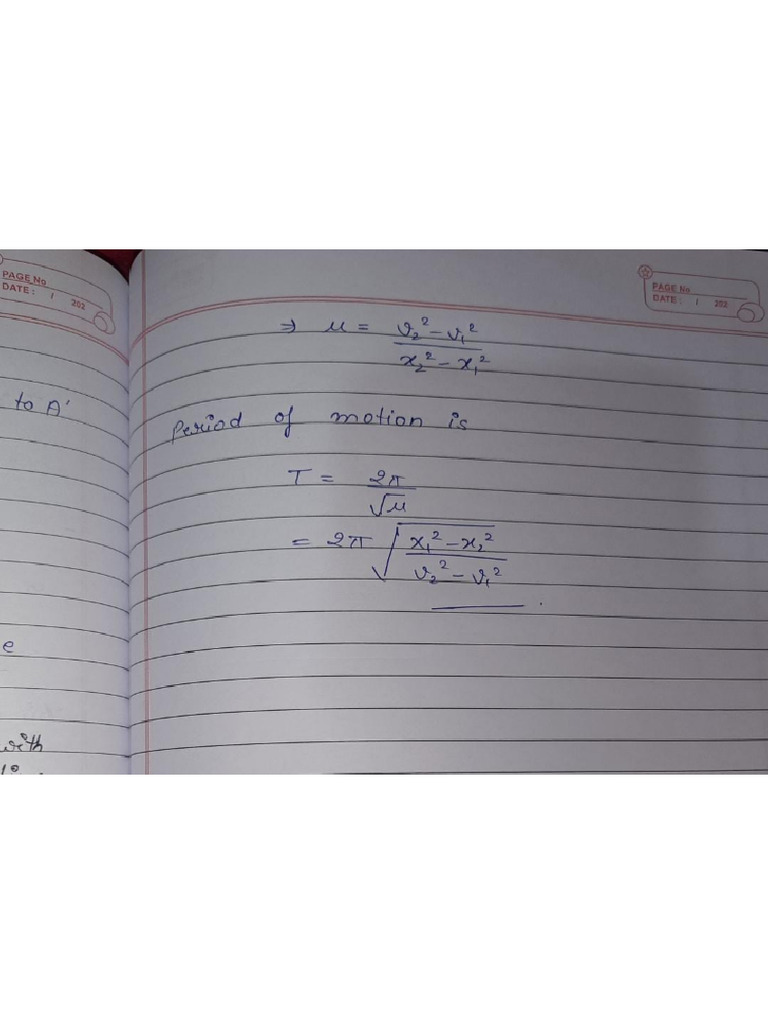 PAGE No
DATE : / 202
to A'
e
with
PAGE No
DATE : / 202
⇒ μ = (v₂² - v₁²) / (x₂² - x₁²)
Period of motion is
T = 2π / √μ
= 2π √((x₁² - x₂²) / (v₂² - v₁²))